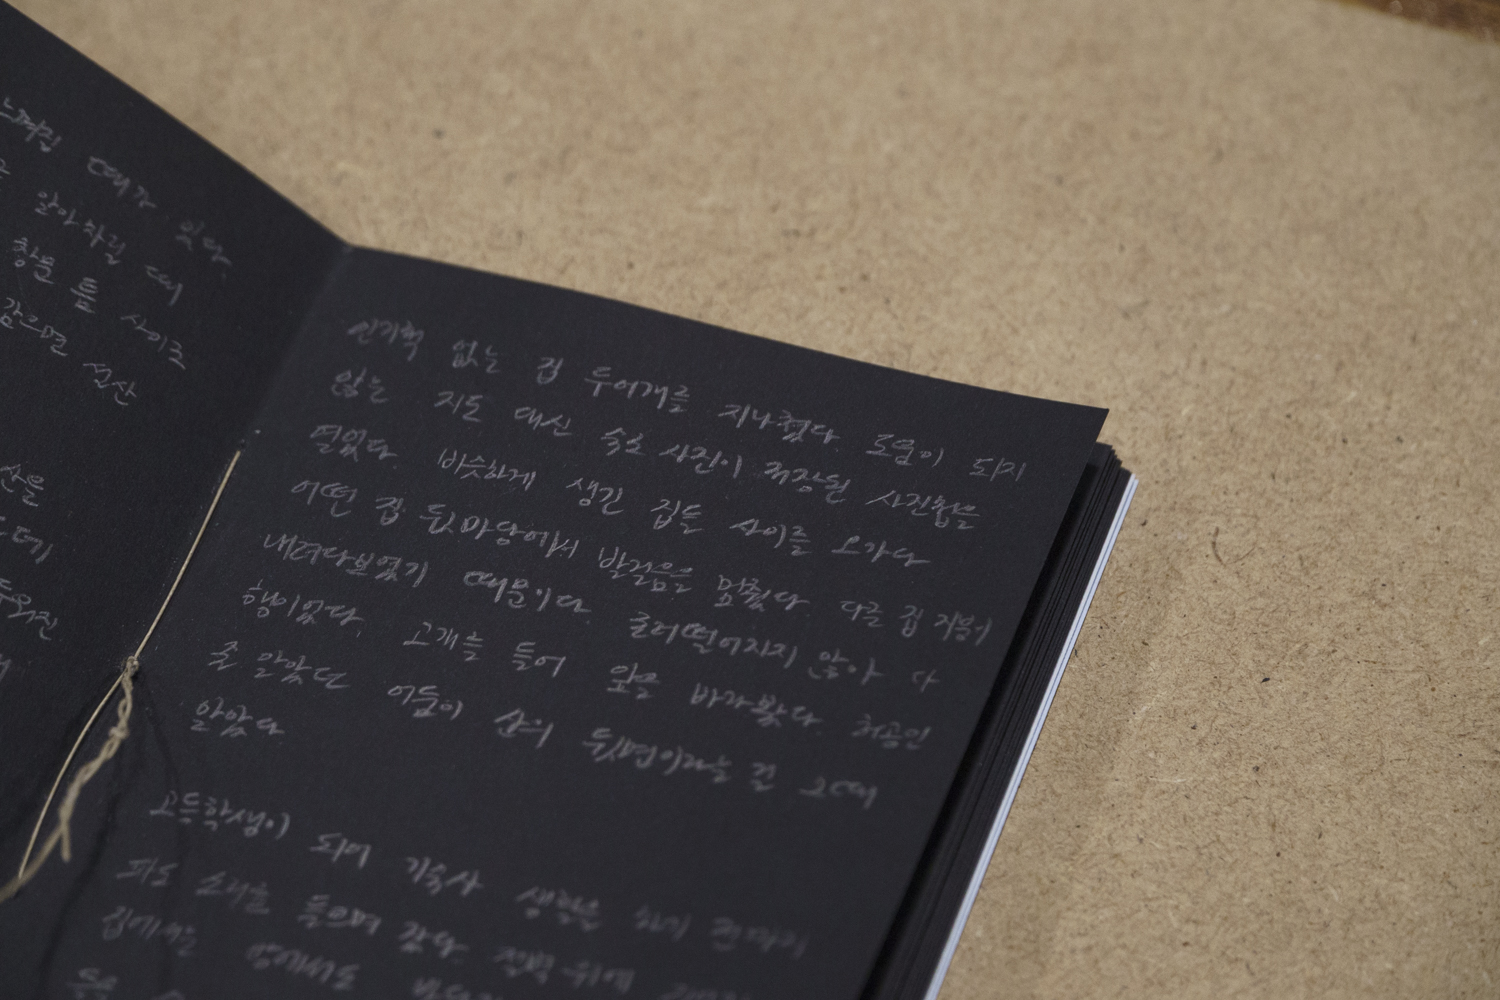 느껴질 때가 있다.
알아차릴 때
창문 틈 사이로
감으면 선산
산을
인기척 없는 집 두어개를 지나쳤다. 도움이 되지
않는 지도 대신 숙소 사진이 저장된 사진첩을
열었다. 비슷하게 생긴 집들 사이를 오가다
어떤 집 뒷마당에서 발걸음을 멈췄다. 다른 집 지붕이
내려다보였기 때문이다. 굴러떨어지지 않아 다
행이었다. 고개를 들어 앞을 바라봤다. 허공인
줄 알았던 어둠이 산의 뒷면이라는 걸 그때
알았다.
고등학생이 되어 기숙사 생활을 하기 전까지
파도 소리를 들으며 잤다.
집에서는